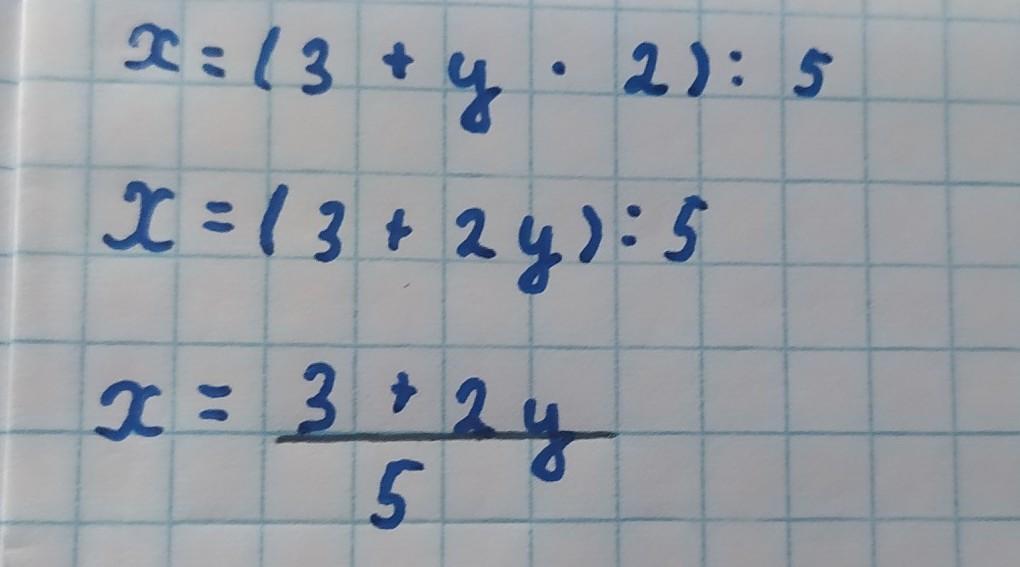 x = (3 + y · 2) : 5
x = (3 + 2y) : 5
x = \frac{3 + 2y}{5}